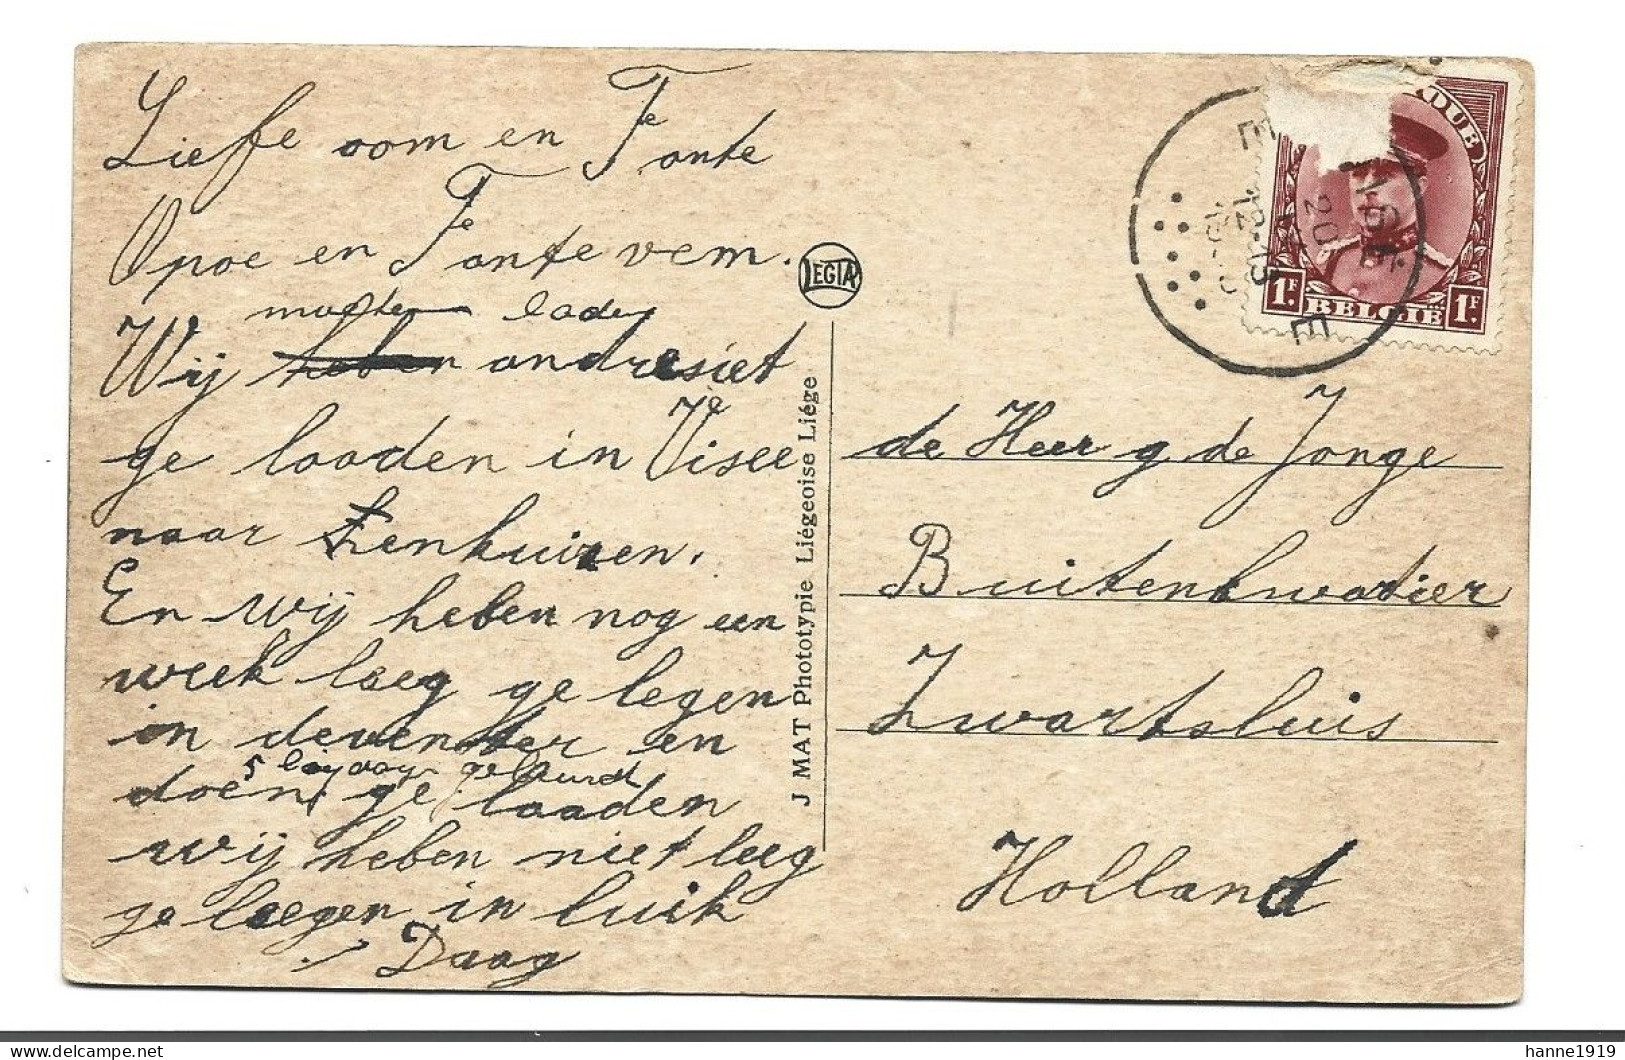 Liefe oom en Tante
Opoe en Tante vem.
moeten laden
Wij heben andresiet
ge laaden in Visee
naar Zenhuizen.
En wij heben nog een
week leeg ge legen
in deventer en
5 gebeurd
doen ge laaden
wij heben niet leeg
ge leegen in luik
Daag
LEGIA
J MAT Phototypie Liégeoise Liége
BELGIE
1F. 1F.
12-13
de Heer g de Jonge
Buitenkwatier
Zwartsluis
Holland
hanne1919